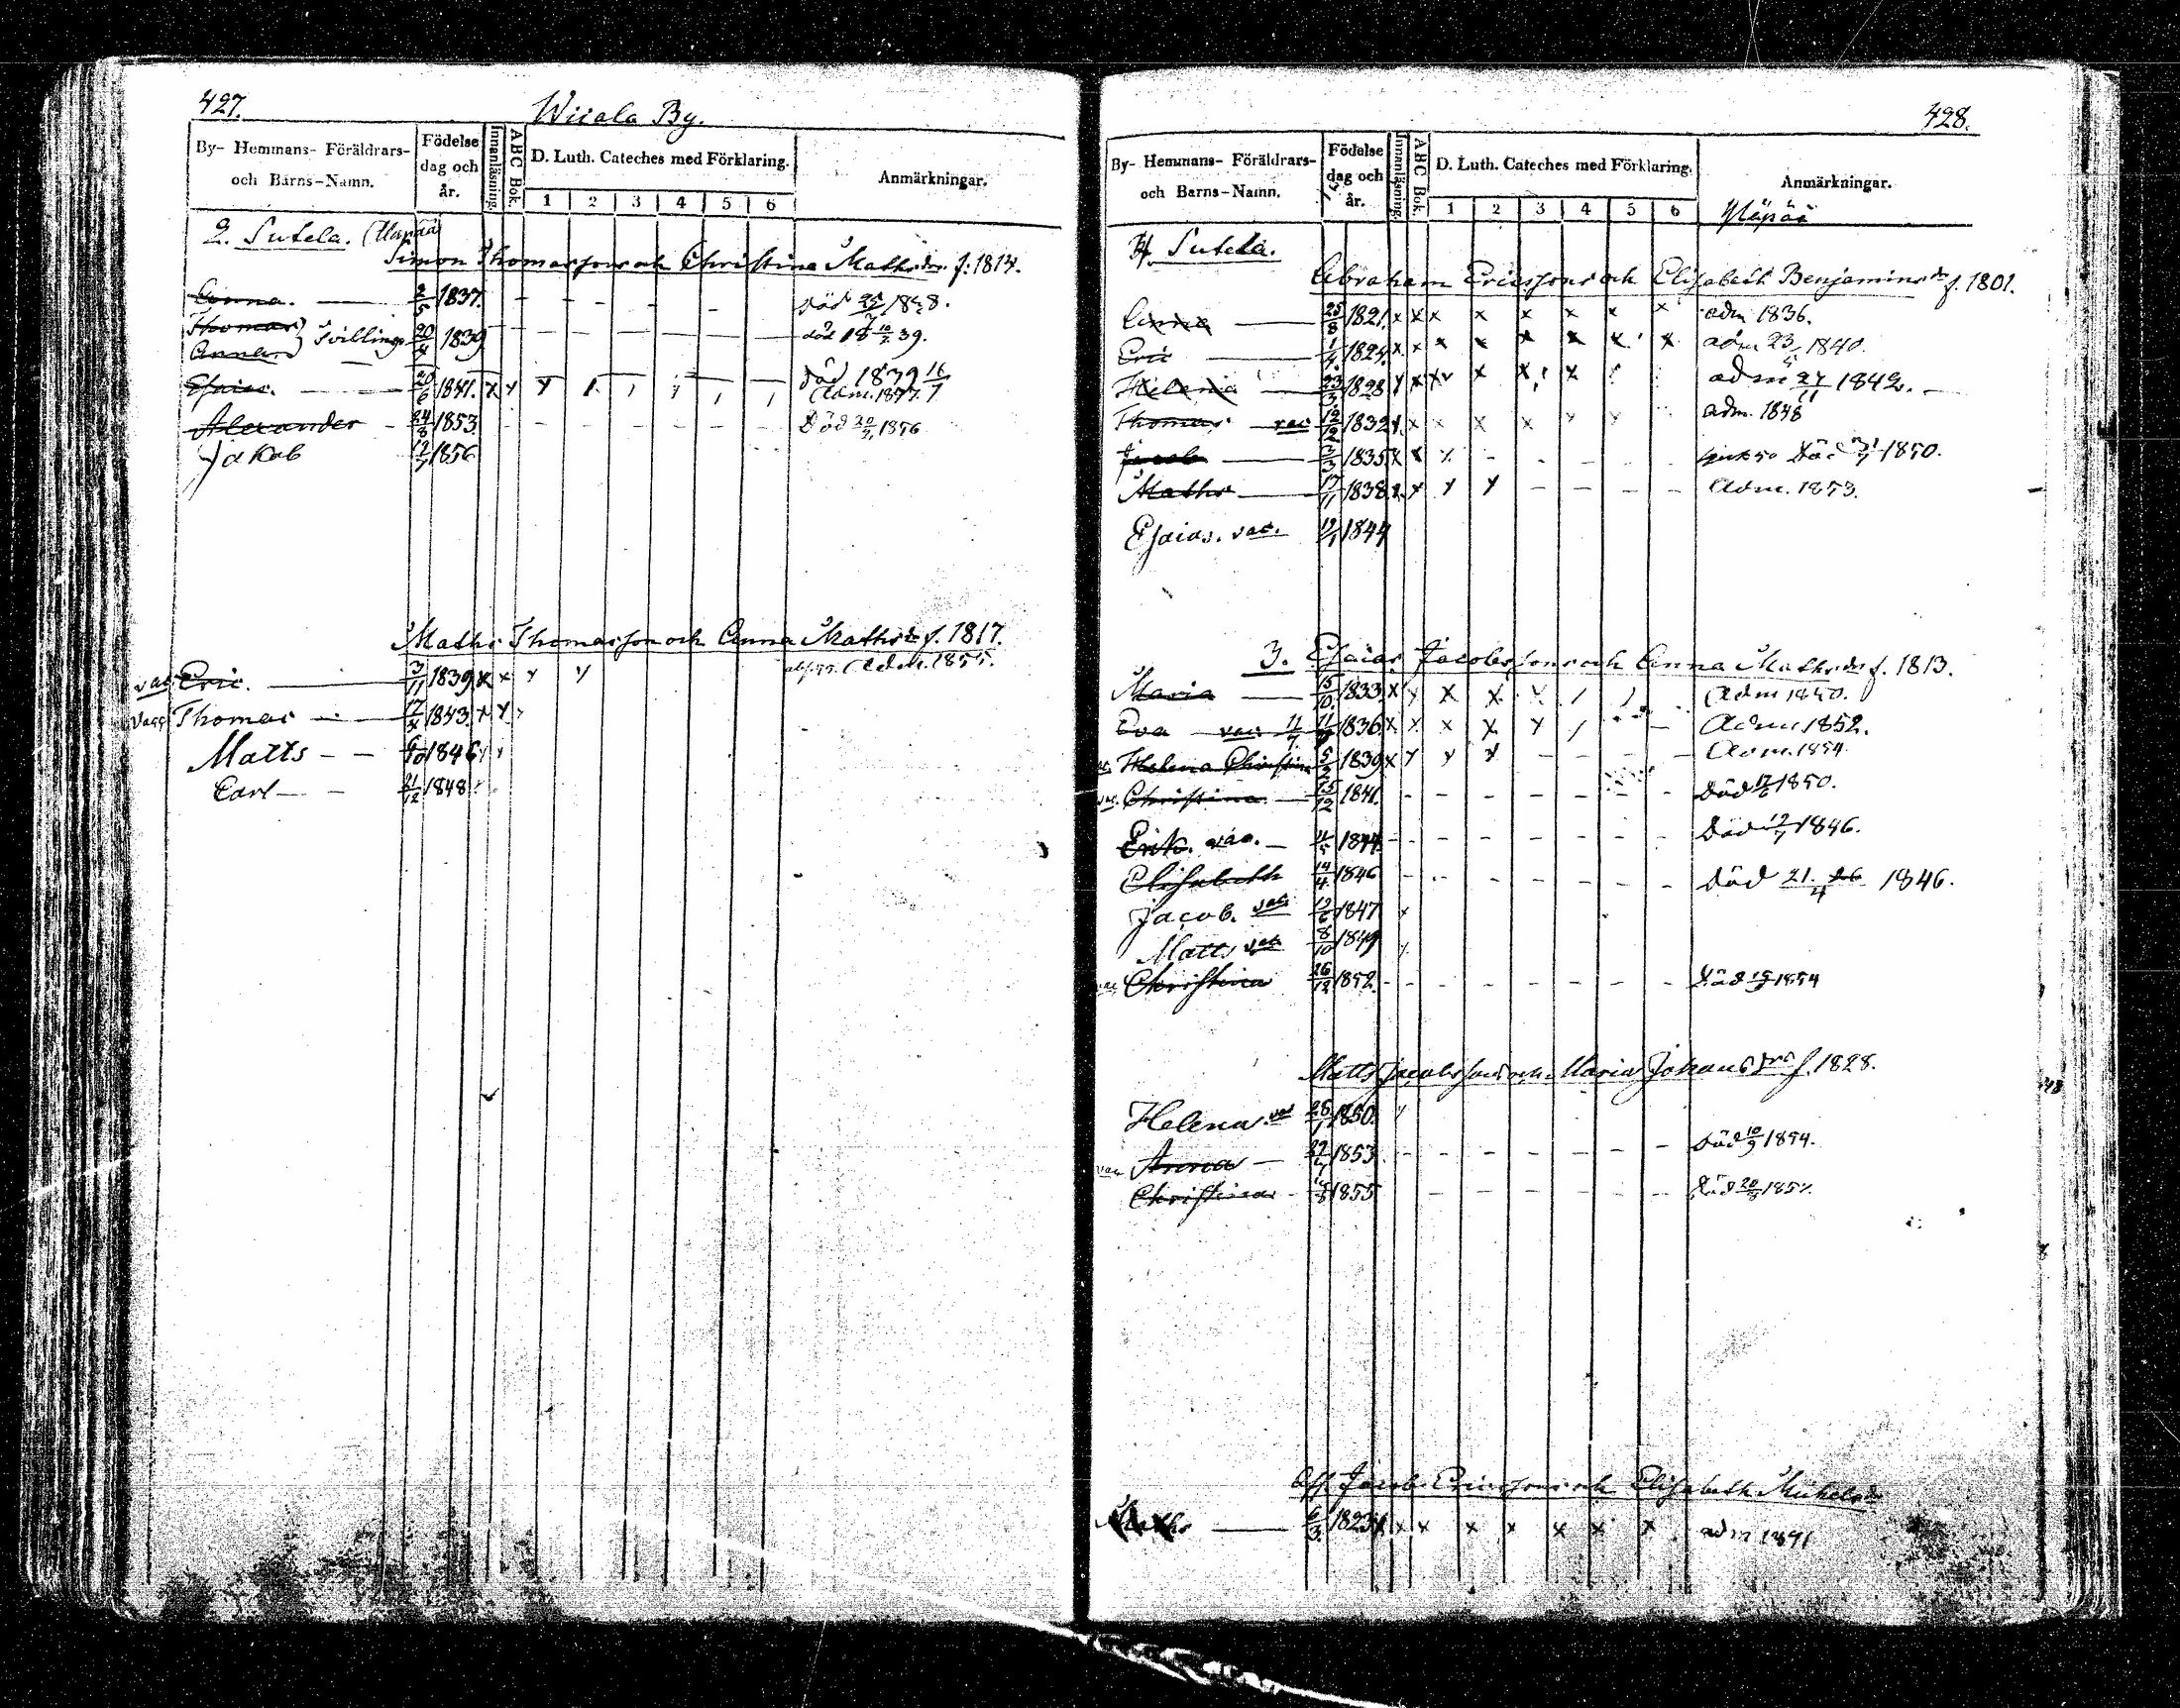 427.
Wirala By.
By- Hemmans- Föräldrars- och Barns-Namn.
Födelse dag och år.
Innanläsning.
ABC Bok.
D. Luth. Cateches med Förklaring.
1 2 3 4 5 6
Anmärkningar.
2. Sutela.
Simon Thomasson och Christina Mathsdr. f. 1814.
Anna. 2/5 1837. död 1848.
Thomas
Annan } Tvillingar 20/4 1839 död 18 10/7 39.
död 1839 16/7
Esaias. 20/6 1841. x y y Adm. 1857.
Alexander 24/8 1853 Död 20/7 1856
Jakob 1856
Maths Thomasson och Anna Mathsdr f. 1817.
vac Eric. 3/11 1839 x x y y Adm. 1855.
vacc Thomas 12/4 1843 x y
Matts 1846
Carl 21/12 1848
428.
By- Hemmans- Föräldrars- och Barns-Namn.
Födelse dag och år.
Innanläsning.
ABC Bok.
D. Luth. Cateches med Förklaring.
1 2 3 4 5 6
Anmärkningar.
Yläpää
Sutela.
Abraham Ericsson och Elisabeth Benjaminsdr f. 1801.
Anna 25/8 1821. x x x x x x x x adm 1836.
Eric 1824 x x x x x x x x adm 23/5 1840.
Helena 23/3 1828 y x x x x x adm 27/11 1842.
Thomas vac 12/12 1832 x x x x adm. 1848
Jacob 3/3 1835 x x x Död 1850.
Maths 17/11 1838 x y y y Adm. 1853.
Esaias. vac. 1844
3. Esaias Jacobsson och Anna Mathsdr f. 1813.
Maria 15/10 1833 x y x x Adm 1850.
Eva vac 1836 x x x x y Adm 1852.
Helena Christina 5/2 1839 x y y y Adm. 1854
vac. Christina 15/12 1841. Död 17/6 1850.
Erik. vac. 11/5 1844 Död 12/7 1846.
Elisabeth 14/4 1846 död 21. 26/4 1846.
Jacob. vac 12/6 1847
Matts vac 8/10 1849
vac Christina 26/12 1852. Död 1854
Matts Jacobsson och Maria Johansdr f. 1828.
Helena vac 1850.
vac Anna 1853 Död 10/9 1854.
Christina 1855 död 20/8 1857.
Aff. Jacob Ericsson och Elisabeth Michelsdr
Maths 1823 x x x x x x x adm 1841